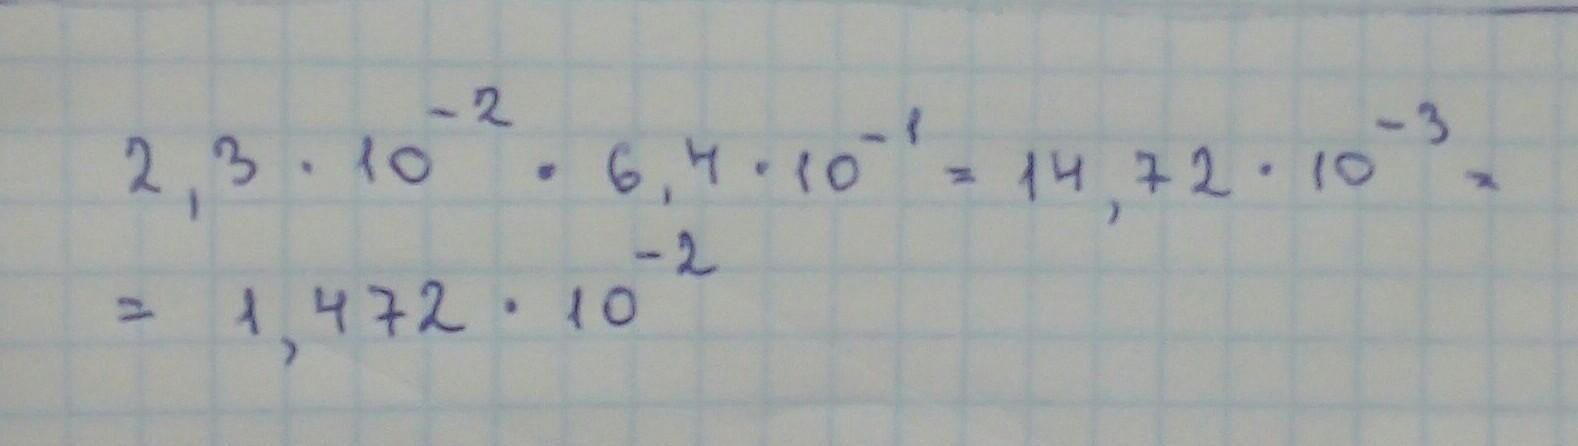 2,3 · 10⁻² · 6,4 · 10⁻¹ = 14,72 · 10⁻³ =
= 1,472 · 10⁻²